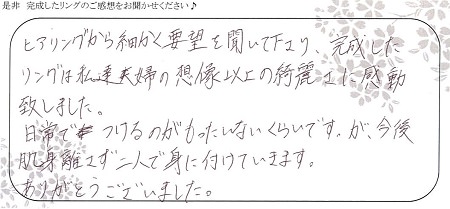 是非 完成したリングのご感想をお聞かせください♪
ヒアリングから細かく要望を聞いて下さり、完成した
リングは私達夫婦の想像以上の綺麗さに感動
致しました。
日常で つけるのがもったいないくらいです。が、今後
肌身離さず二人で身に付けていきます。
ありがとうございました。